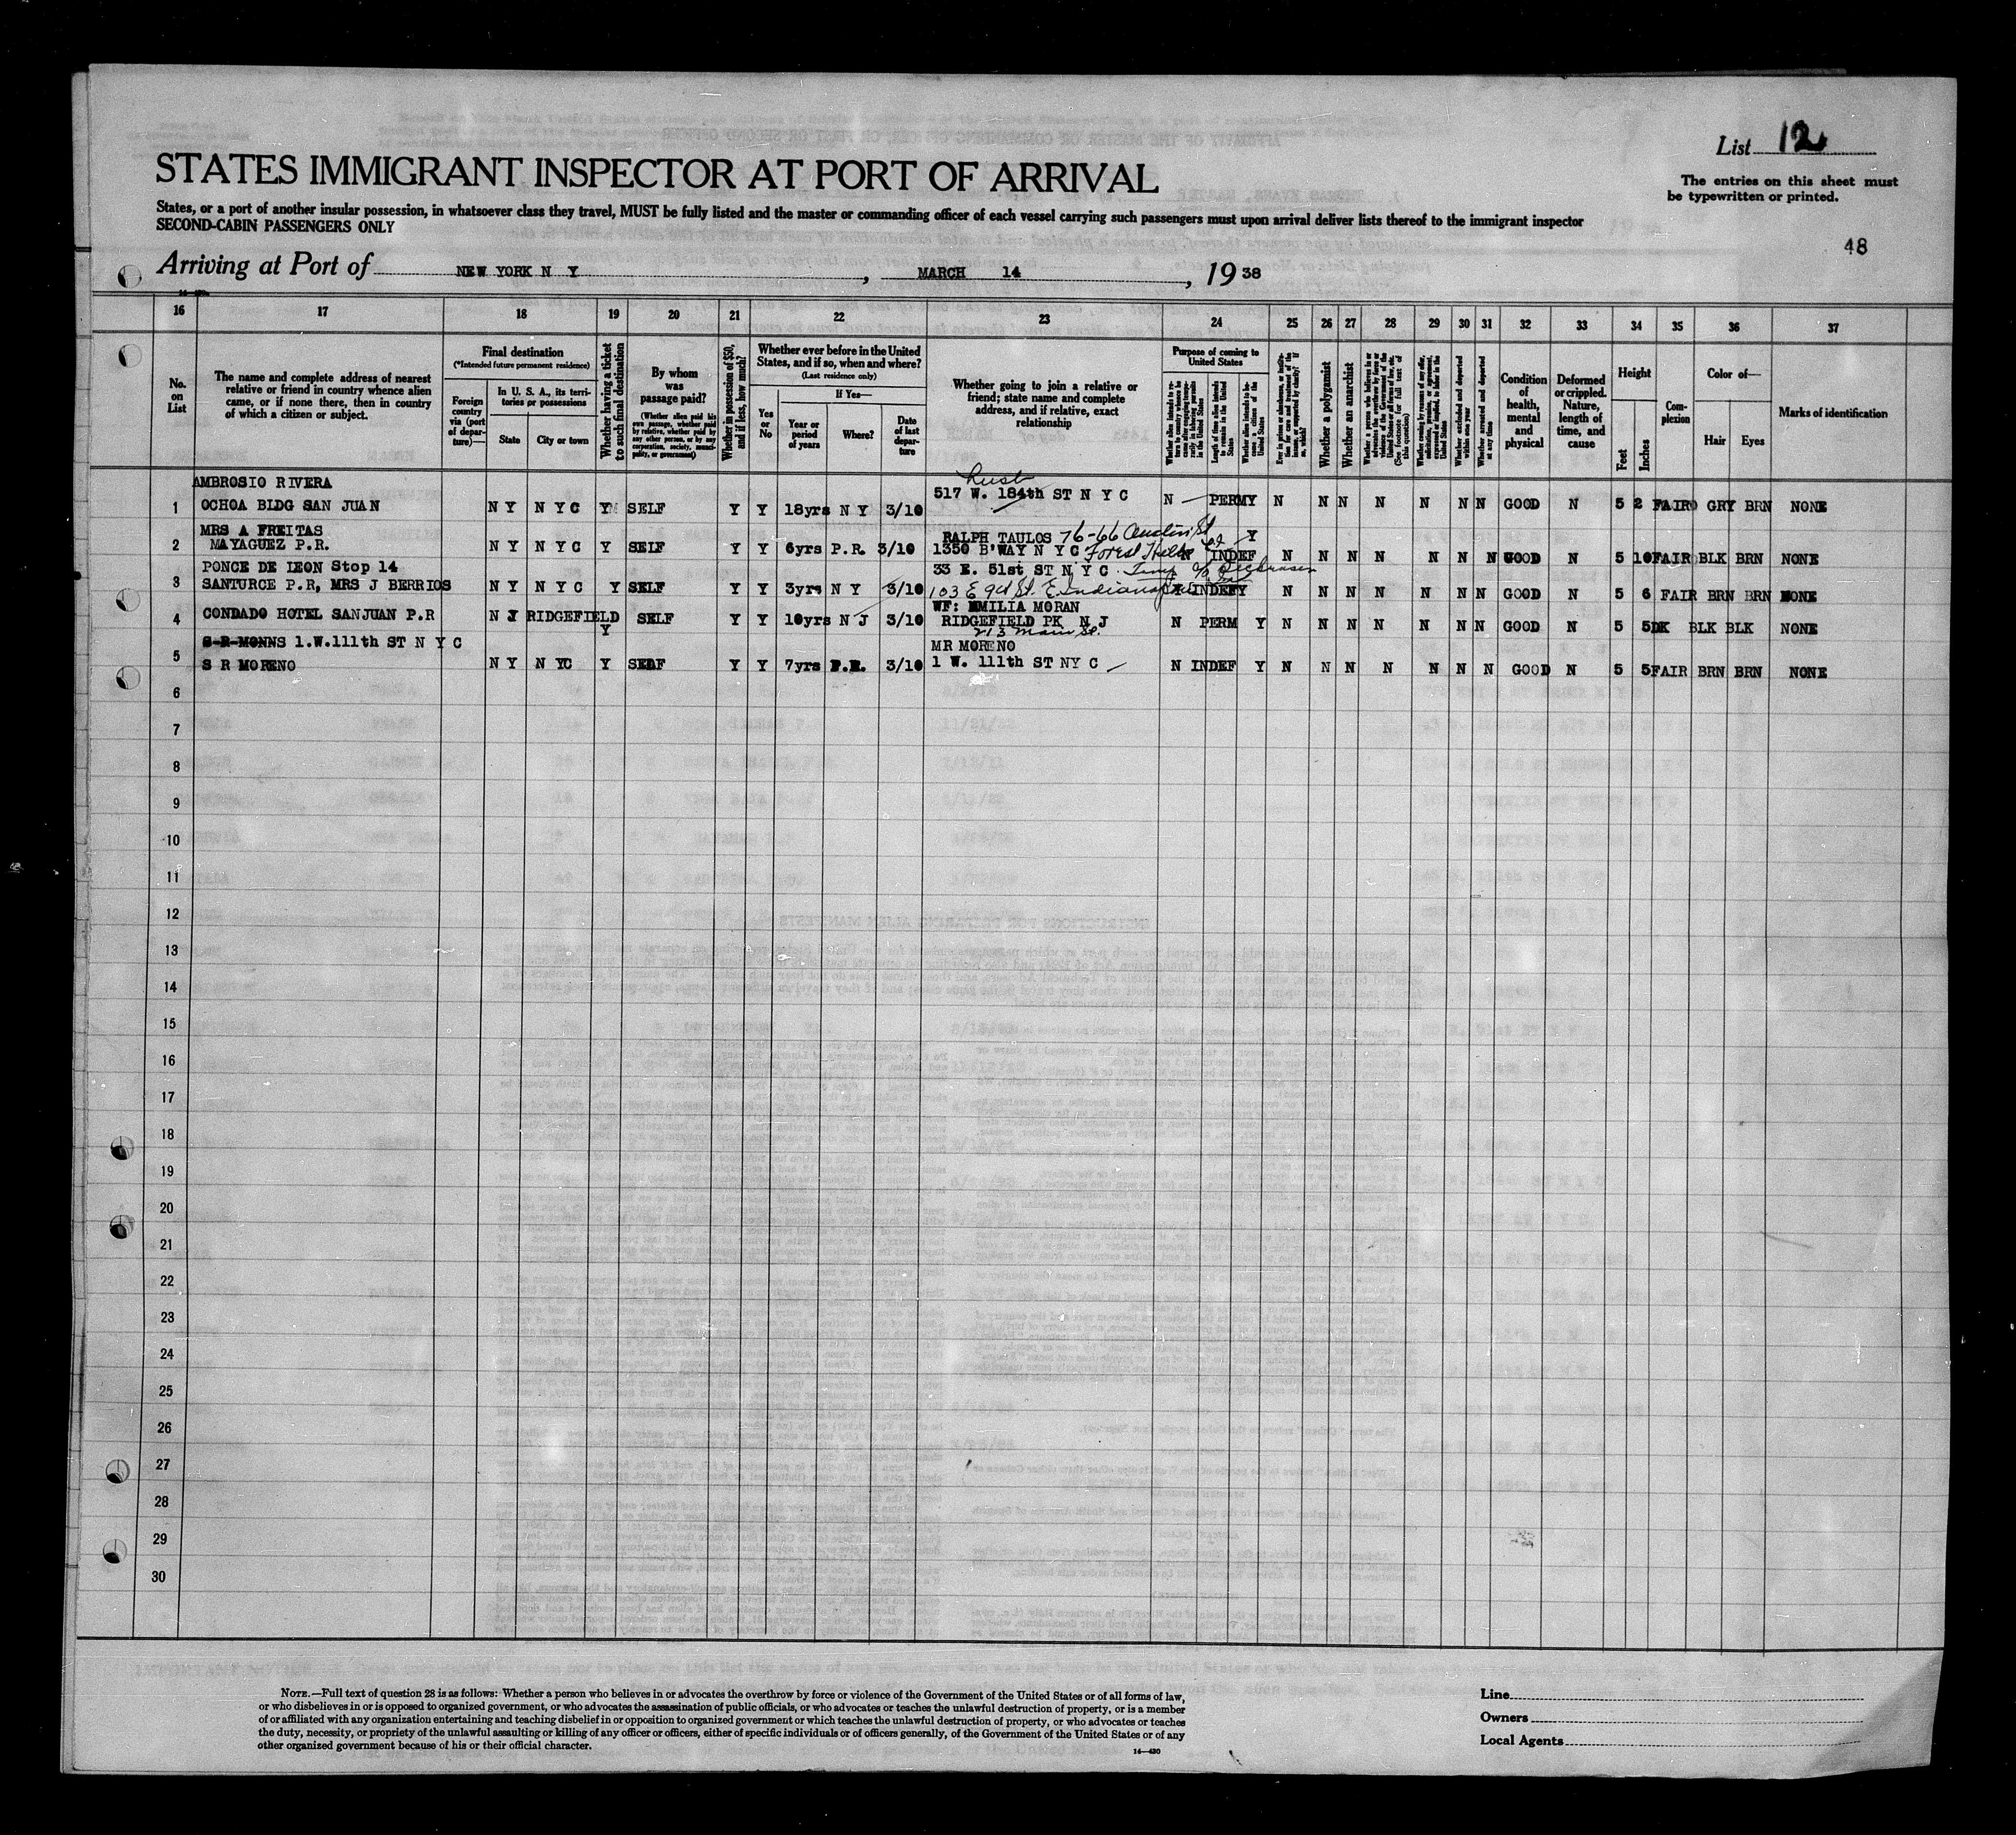 List 12
STATES IMMIGRANT INSPECTOR AT PORT OF ARRIVAL
The entries on this sheet must
be typewritten or printed.
States, or a port of another insular possession, in whatsoever class they travel, MUST be fully listed and the master or commanding officer of each vessel carrying such passengers must upon arrival deliver lists thereof to the immigrant inspector
SECOND-CABIN PASSENGERS ONLY
48
Arriving at Port of NEW YORK N Y, MARCH 14, 19 38
16 17 18 19 20 21 22 23 24 25 26 27 28 29 30 31 32 33 34 35 36 37
No. on List
The name and complete address of nearest
relative or friend in country whence alien
came, or if none there, then in country
of which a citizen or subject.
Final destination
(*Intended future permanent residence)
Foreign country via (port of departure)—
In U. S. A., its territories or possessions
State
City or town
Whether having a ticket to such final destination
By whom was passage paid?
(Whether alien paid his own passage, whether paid by relative, whether paid by any other person, or by any corporation, society, municipality, or government)
Whether in possession of $50, and if less, how much?
Whether ever before in the United
States, and if so, when and where?
(Last residence only)
Yes or No
If Yes—
Year or period of years
Where?
Date of last departure
Whether going to join a relative or
friend; state name and complete
address, and if relative, exact
relationship
Purpose of coming to United States
Whether a polygamist
Whether an anarchist
Condition of health, mental and physical
Deformed or crippled. Nature, length of time, and cause
Height
Feet
Inches
Complexion
Color of—
Hair
Eyes
Marks of identification
AMBROSIO RIVERA
1 OCHOA BLDG SAN JUAN N Y N Y C Y SELF Y Y 18yrs N Y 3/10 517 W. 184th ST N Y C N — PERM Y N N N N N N N GOOD N 5 2 FAIR GRY BRN NONE
MRS A FREITAS RALPH TAULOS 76-66 Austin St
2 MAYAGUEZ P.R. N Y N Y C Y SELF Y Y 6yrs P.R. 3/10 1350 B'WAY N Y C Forest Hills N INDEF Y N N N N N N N GOOD N 5 10 FAIR BLK BRN NONE
PONCE DE LEON Stop 14 33 E. 51st ST N Y C
3 SANTURCE P.R, MRS J BERRIOS N Y N Y C Y SELF Y Y 3yrs N Y 3/10 103 E 9th St. E. INDEF Y N N N N N N N GOOD N 5 6 FAIR BRN BRN NONE
WF: EMILIA MORAN
4 CONDADO HOTEL SANJUAN P.R N J RIDGEFIELD Y SELF Y Y 10yrs N J 3/10 RIDGEFIELD PK N J N PERM Y N N N N N N N GOOD N 5 5 DK BLK BLK NONE
213 Main St.
S R MONNS 1.W.111th ST N Y C MR MORENO
5 S R MORENO N Y N YC Y SELF Y Y 7yrs P.R. 3/10 1 W. 111th ST NY C N INDEF Y N N N N N N N GOOD N 5 5 FAIR BRN BRN NONE
6
7
8
9
10
11
12
13
14
15
16
17
18
19
20
21
22
23
24
25
26
27
28
29
30
NOTE.—Full text of question 28 is as follows: Whether a person who believes in or advocates the overthrow by force or violence of the Government of the United States or of all forms of law,
or who disbelieves in or is opposed to organized government, or who advocates the assassination of public officials, or who advocates or teaches the unlawful destruction of property, or is a member
of or affiliated with any organization entertaining and teaching disbelief in or opposition to organized government or which teaches the unlawful destruction of property, or who advocates or teaches
the duty, necessity, or propriety of the unlawful assaulting or killing of any officer or officers, either of specific individuals or of officers generally, of the Government of the United States or of any
other organized government because of his or their official character.
14—430
Line
Owners
Local Agents